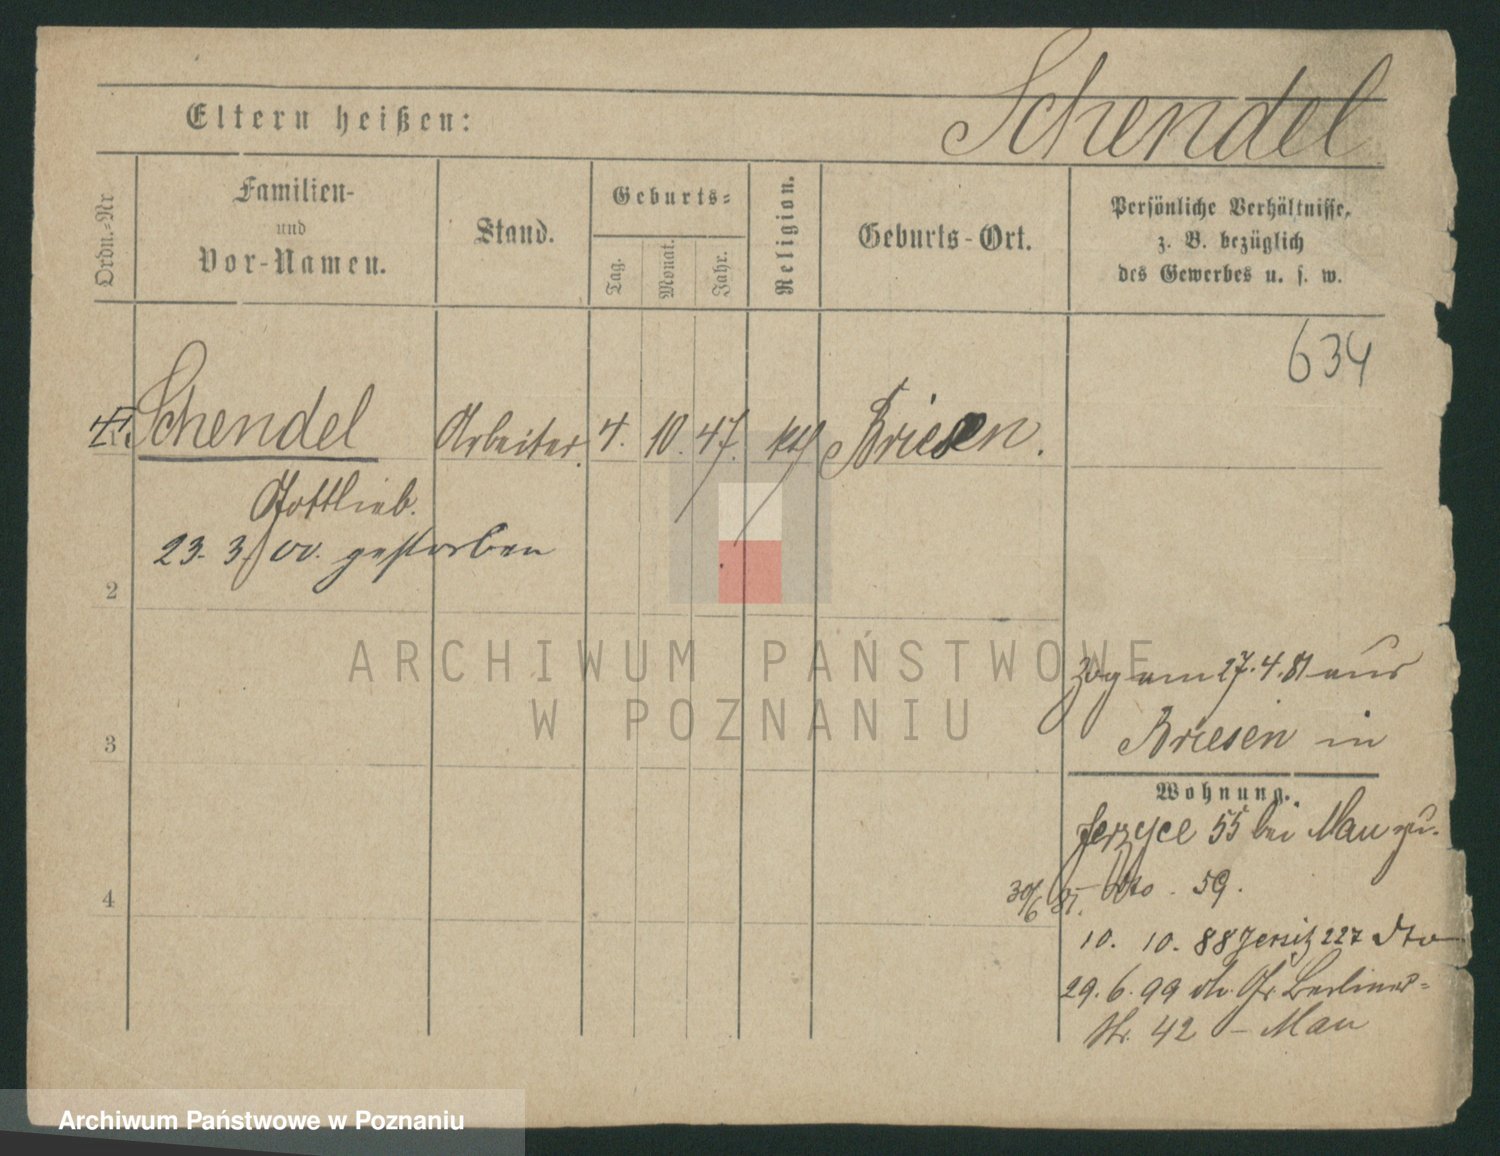 Schendel
Eltern heißen:
Ordn.-Nr
Familien-
und
Vor-Namen.
Stand.
Geburts-
Tag.
Monat.
Jahr.
Religion.
Geburts-Ort.
Persönliche Verhältnisse,
z. B. bezüglich
des Gewerbes u. s. w.
634
Schendel Arbeiter. 4. 10. 47. Briesen.
Gottlieb.
23. 3. 00. gestorben
2
ARCHIWUM PAŃSTWOWE
W POZNANIU
Zog am 27.4.81 aus
Briesen in
3
Wohnung.
Jerzyce 55 bei Mau zu.
4
30/6 81. dto. 59.
10. 10. 88 Jersitz 227 dto
29. 6. 99 Gr. Berliner-
Str. 42 – Mau
Archiwum Państwowe w Poznaniu